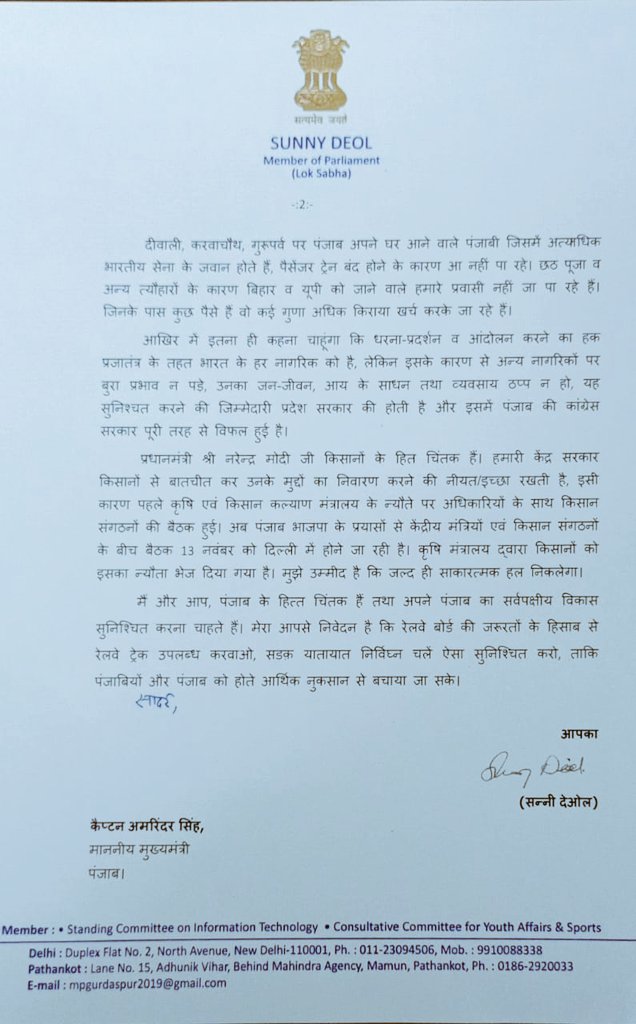 सत्यमेव जयते
SUNNY DEOL
Member of Parliament
(Lok Sabha)
-:2:-
दीवाली, करवाचौथ, गुरूपर्व पर पंजाब अपने घर आने वाले पंजाबी जिसमें अत्याधिक
भारतीय सेना के जवान होते हैं, पैसेंजर ट्रेन बंद होने के कारण आ नहीं पा रहे। छठ पूजा व
अन्य त्यौहारों के कारण बिहार व यूपी को जाने वाले हमारे प्रवासी नहीं जा पा रहे हैं।
जिनके पास कुछ पैसे हैं वो कई गुणा अधिक किराया खर्च करके जा रहे हैं।
आखिर में इतना ही कहना चाहूंगा कि धरना-प्रदर्शन व आंदोलन करने का हक
प्रजातंत्र के तहत भारत के हर नागरिक को है, लेकिन इसके कारण से अन्य नागरिकों पर
बुरा प्रभाव न पड़े, उनका जन-जीवन, आय के साधन तथा व्यवसाय ठप्प न हो, यह
सुनिश्चत करने की जिम्मेदारी प्रदेश सरकार की होती है और इसमें पंजाब की कांग्रेस
सरकार पूरी तरह से विफल हुई है।
प्रधानमंत्री श्री नरेन्द्र मोदी जी किसानों के हित चिंतक हैं। हमारी केंद्र सरकार
किसानों से बातचीत कर उनके मुद्दों का निवारण करने की नीयत/इच्छा रखती है, इसी
कारण पहले कृषि एवं किसान कल्याण मंत्रालय के न्यौते पर अधिकारियों के साथ किसान
संगठनों की बैठक हुई। अब पंजाब भाजपा के प्रयासों से केंद्रीय मंत्रियों एवं किसान संगठनों
के बीच बैठक 13 नवंबर को दिल्ली में होने जा रही है। कृषि मंत्रालय द्वारा किसानों को
इसका न्यौता भेज दिया गया है। मुझे उम्मीद है कि जल्द ही साकारत्मक हल निकलेगा।
मैं और आप, पंजाब के हित्त चिंतक हैं तथा अपने पंजाब का सर्वपक्षीय विकास
सुनिश्चित करना चाहते हैं। मेरा आपसे निवेदन है कि रेलवे बोर्ड की जरूरतों के हिसाब से
रेलवे ट्रेक उपलब्ध करवाओ, सडक़ यातायात निर्विघ्न चलें ऐसा सुनिश्चित करो, ताकि
पंजाबियों और पंजाब को होते आर्थिक नुकसान से बचाया जा सके।
सादर,
आपका
Sunny Deol
(सन्नी देओल)
कैप्टन अमरिंदर सिंह,
माननीय मुख्यमंत्री
पंजाब।
Member : • Standing Committee on Information Technology • Consultative Committee for Youth Affairs & Sports
Delhi : Duplex Flat No. 2, North Avenue, New Delhi-110001, Ph. : 011-23094506, Mob. : 9910088338
Pathankot : Lane No. 15, Adhunik Vihar, Behind Mahindra Agency, Mamun, Pathankot, Ph. : 0186-2920033
E-mail : mpgurdaspur2019@gmail.com